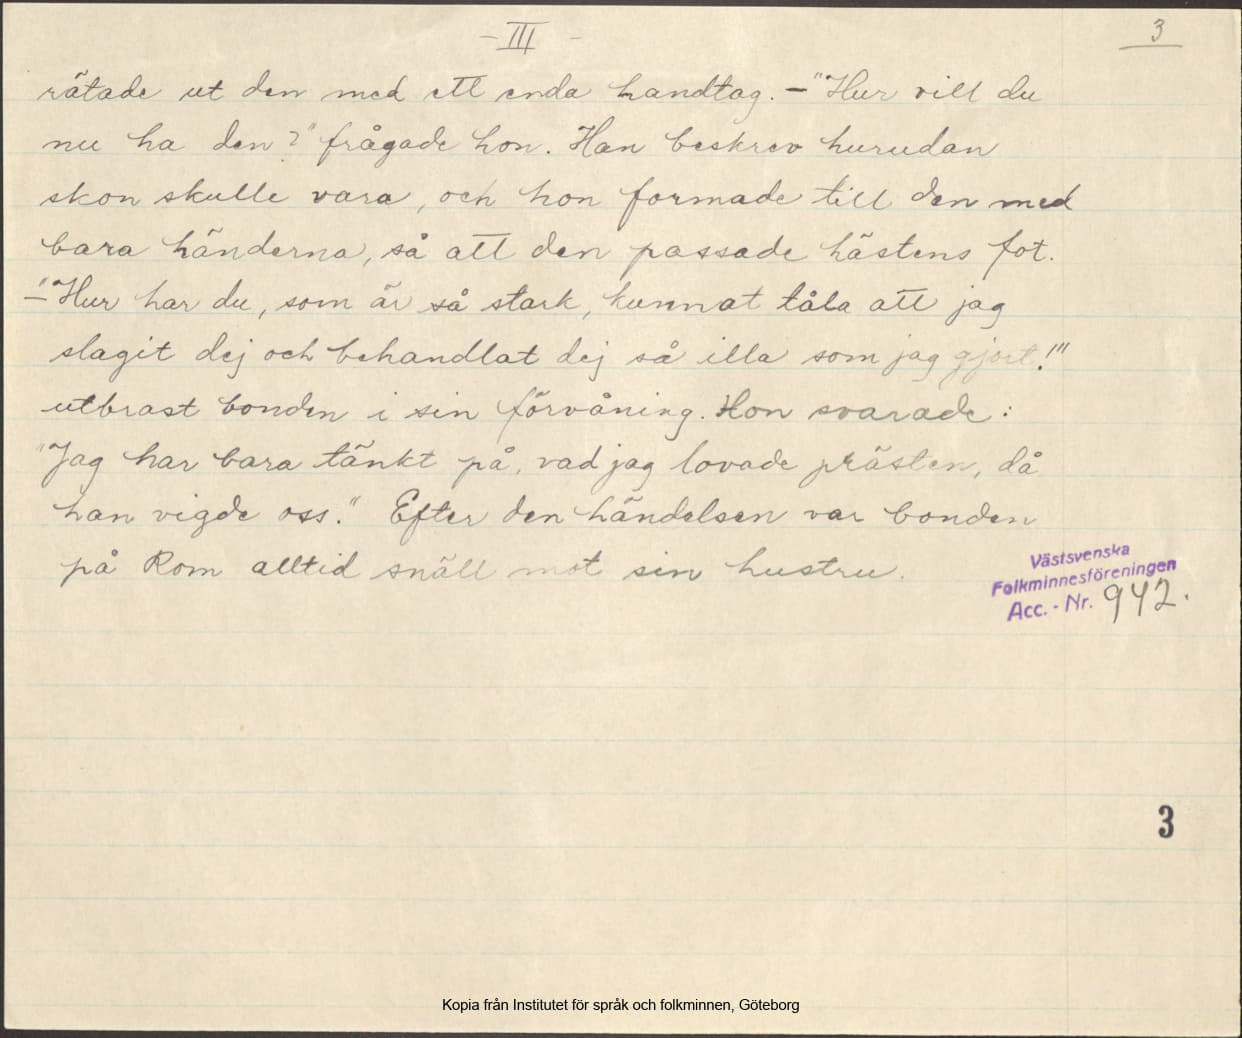 - III -
3
rätade ut den med ett enda handtag. - "Hur vill du
nu ha den?" frågade hon. Han beskrev hurudan
skon skulle vara, och hon formade till den med
bara händerna, så att den passade hästens fot.
- "Hur har du, som är så stark, kunnat tåla att jag
slagit dej och behandlat dej så illa som jag gjort!"
utbrast bonden i sin förvåning. Hon svarade:
"Jag har bara tänkt på, vad jag lovade prästen, då
han vigde oss." Efter den händelsen var bonden
på Rom alltid snäll mot sin hustru.
Västsvenska
Folkminnesföreningen
Acc. - Nr. 942.
3
Kopia från Institutet för språk och folkminnen, Göteborg